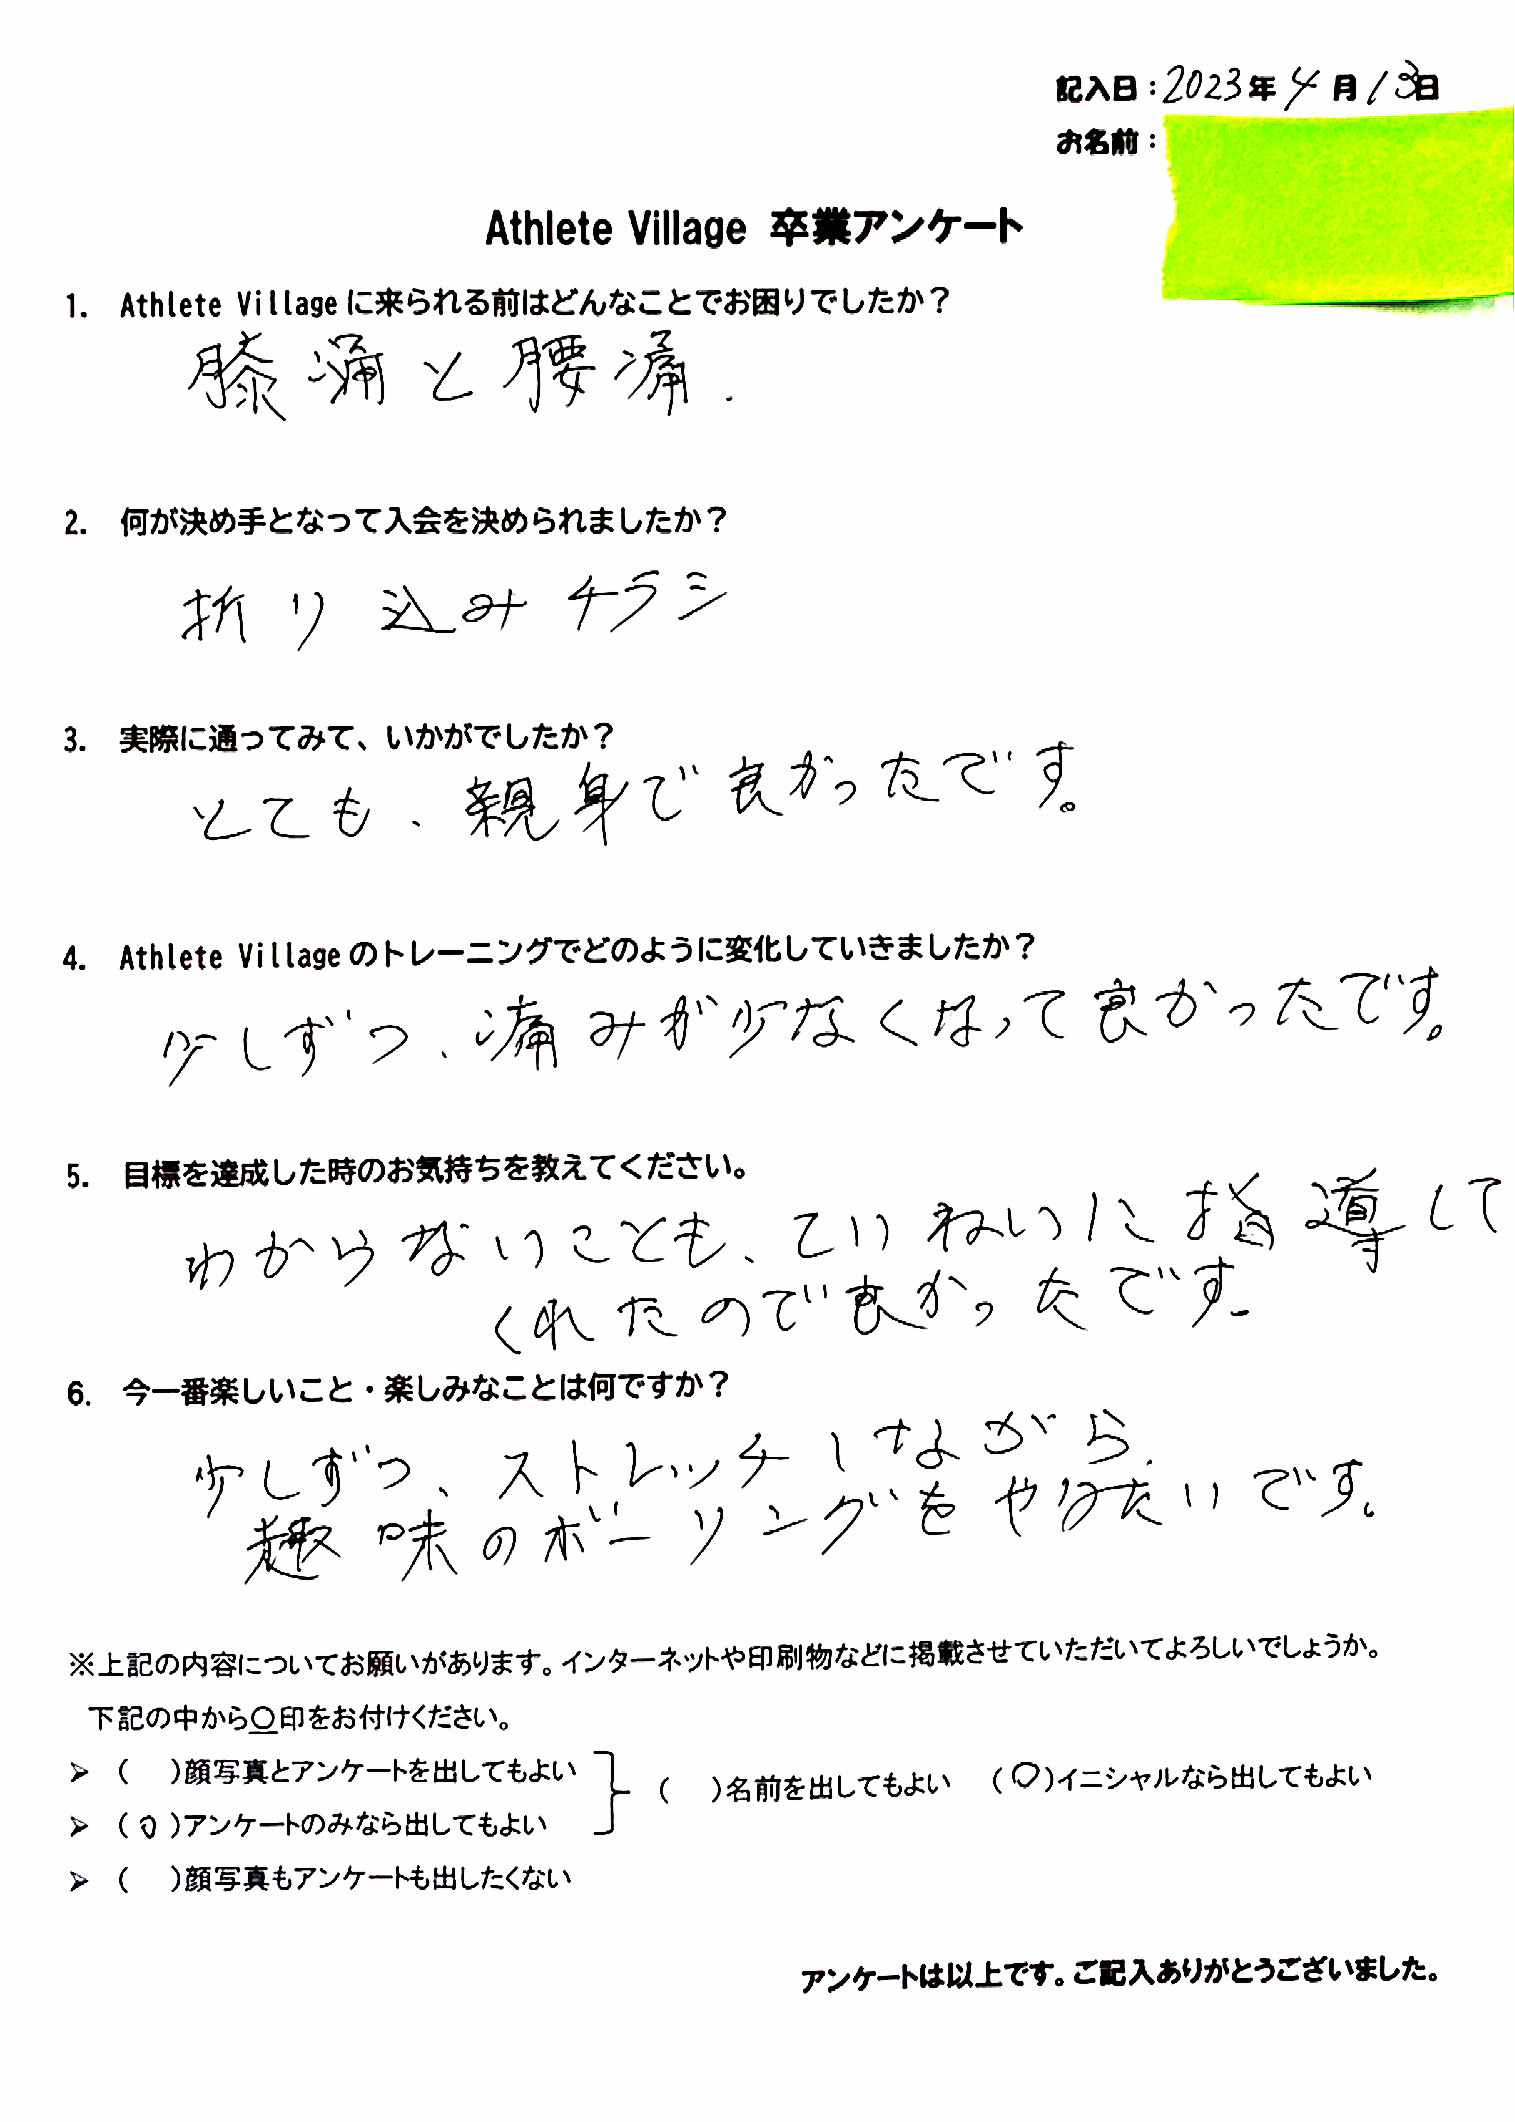 記入日：2023年4月13日
お名前：
Athlete Village 卒業アンケート
1. Athlete Villageに来られる前はどんなことでお困りでしたか？
膝痛と腰痛.
2. 何が決め手となって入会を決められましたか？
折り込みチラシ
3. 実際に通ってみて、いかがでしたか？
とても、親身で良かったです。
4. Athlete Villageのトレーニングでどのように変化していきましたか？
少しずつ、痛みが少なくなって良かったです。
5. 目標を達成した時のお気持ちを教えてください。
わからないことも、ていねいに指導して
くれたので良かったです.
6. 今一番楽しいこと・楽しみなことは何ですか？
少しずつ、ストレッチしながら、
趣味のボーリングをやりたいです。
※上記の内容についてお願いがあります。インターネットや印刷物などに掲載させていただいてよろしいでしょうか。
下記の中から〇印をお付けください。
➢ （ ）顔写真とアンケートを出してもよい （ ）名前を出してもよい （〇）イニシャルなら出してもよい
➢ （〇）アンケートのみなら出してもよい
➢ （ ）顔写真もアンケートも出したくない
アンケートは以上です。ご記入ありがとうございました。